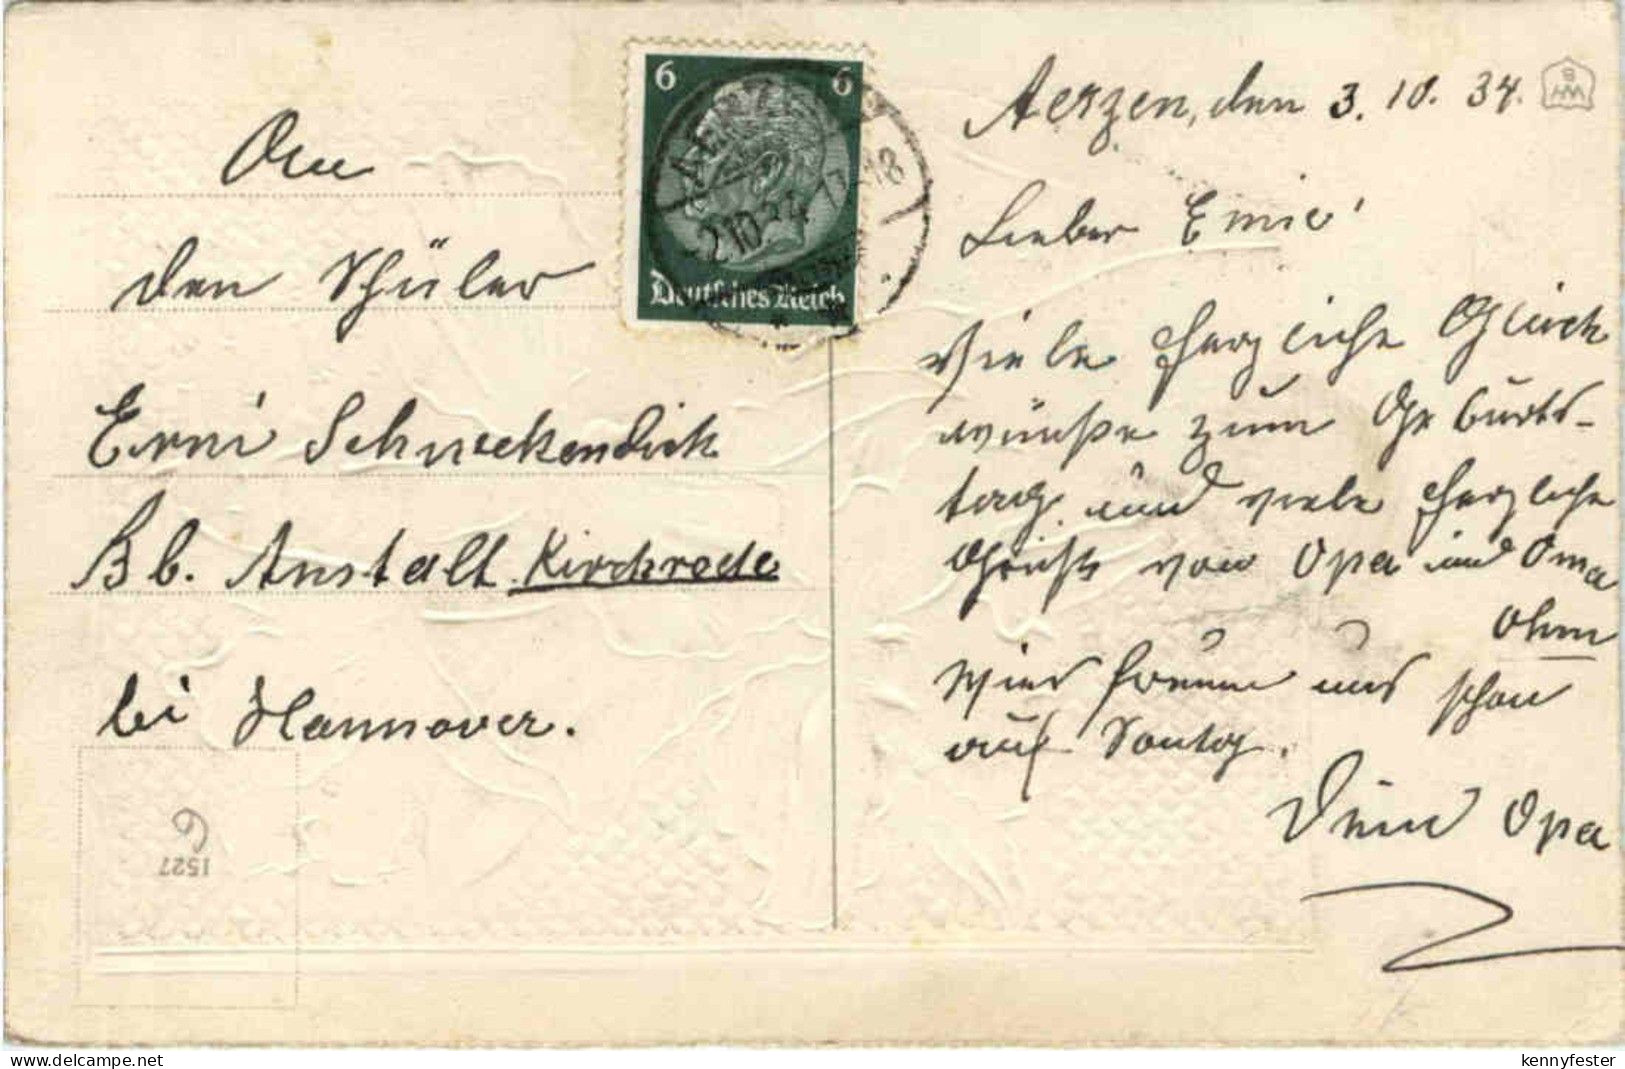 An
den Schüler
Erni Schneckendick
Bb. Anstalt Kirchrode
bei Hannover.
6 6
Deutsches Reich
2.10.34 17-18
1527
Aerzen, den 3.10.34.
Lieber Erni!
Viele herzliche Glück
wünsche zum Geburts-
tag und viele herzliche
Grüße von Opa und Oma
Ohm
Wier freuen uns schon
auf Sontag.
Dein Opa
kennyfester